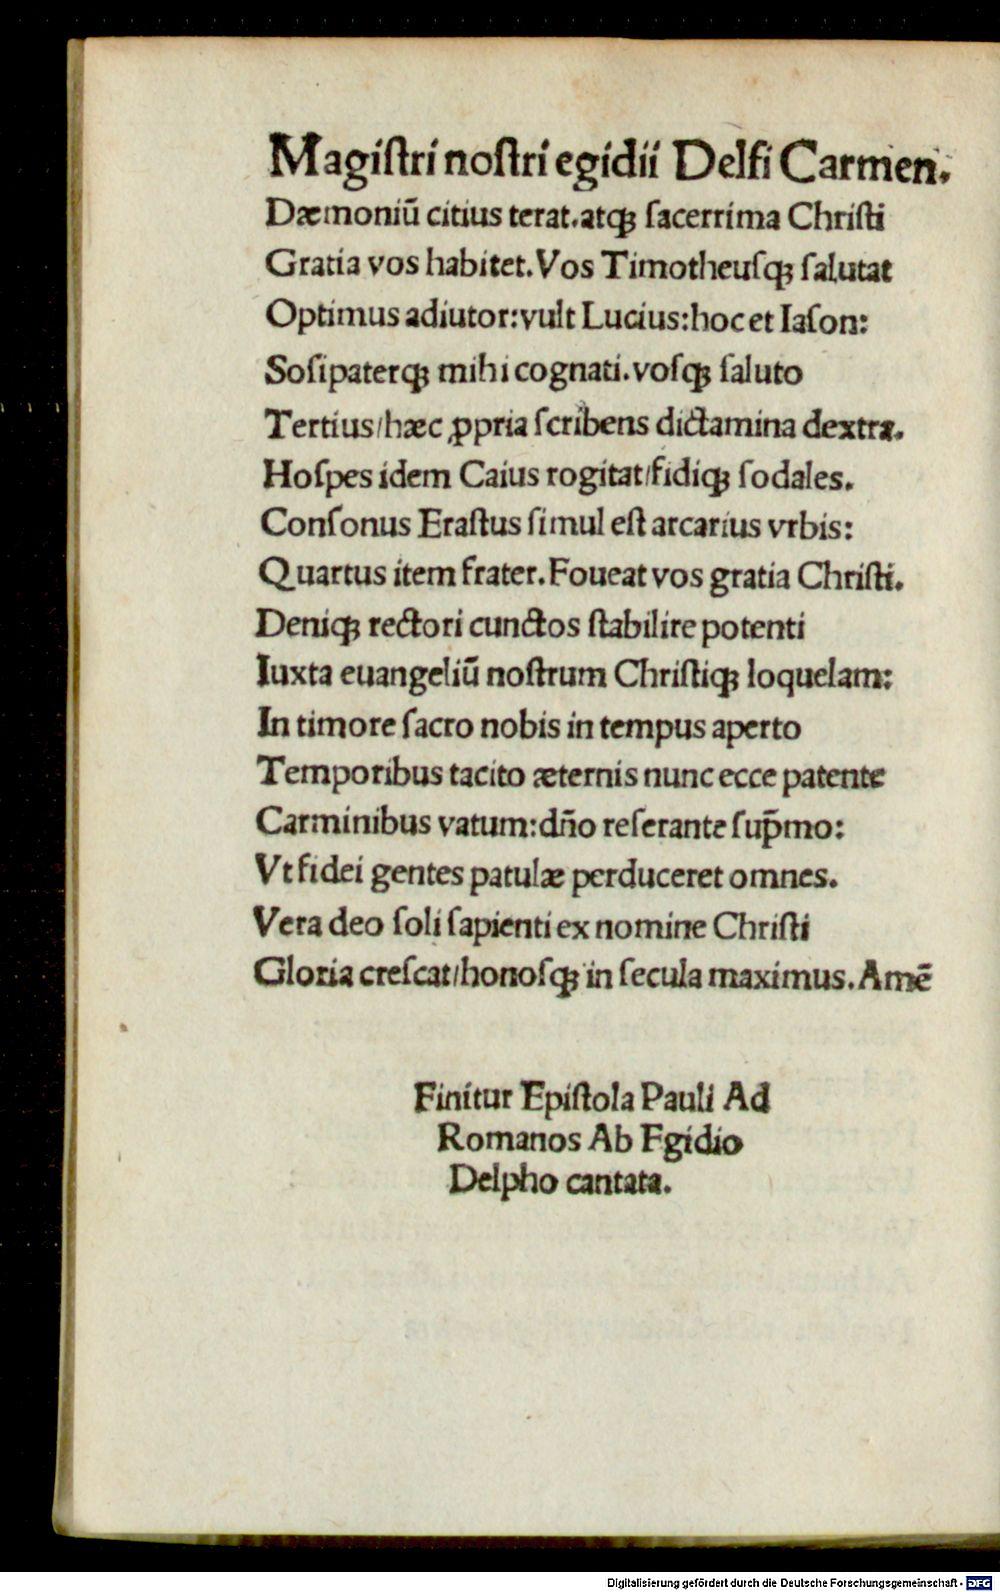 Magiſtri noſtri egidii Delfi Carmen.
Dæmoniū citius terat. atqꝫ ſacerrima Chriſti
Gratia vos habitet. Vos Timotheuſqꝫ ſalutat
Optimus adiutor: vult Lucius: hoc et Iaſon:
Soſipaterqꝫ mihi cognati. voſqꝫ ſaluto
Tertius/hæc ꝓpria ſcribens dictamina dextra.
Hoſpes idem Caius rogitat/fidiqꝫ ſodales.
Conſonus Eraſtus ſimul eſt arcarius vrbis:
Quartus item frater. Foueat vos gratia Chriſti.
Deniqꝫ rectori cunctos ſtabilire potenti
Iuxta euangeliū noſtrum Chriſtiqꝫ loquelam:
In timore ſacro nobis in tempus aperto
Temporibus tacito æternis nunc ecce patente
Carminibus vatum: dño reſerante ſup̄mo:
Vt fidei gentes patulæ perduceret omnes.
Vera deo ſoli ſapienti ex nomine Chriſti
Gloria creſcat/honoſqꝫ in ſecula maximus. Amē
Finitur Epiſtola Pauli Ad
Romanos Ab Egidio
Delpho cantata.
Digitalisierung gefördert durch die Deutsche Forschungsgemeinschaft - DFG